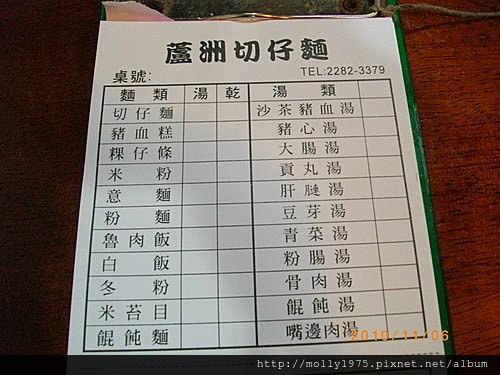 蘆洲切仔麵
桌號: TEL:2282-3379
麵類 湯 乾 湯類
切仔麵 沙茶豬血湯
豬血糕 豬心湯
粿仔條 大腸湯
米粉 貢丸湯
意麵 肝腱湯
粉麵 豆芽湯
魯肉飯 青菜湯
白飯 粉腸湯
冬粉 骨肉湯
米苔目 餛飩湯
餛飩麵 嘴邊肉湯
2010/11/06
http://molly1975.pixnet.net/album